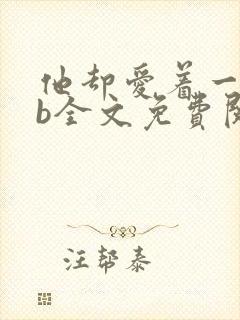 他却爱着一
b全文免費閱
汪帮泰